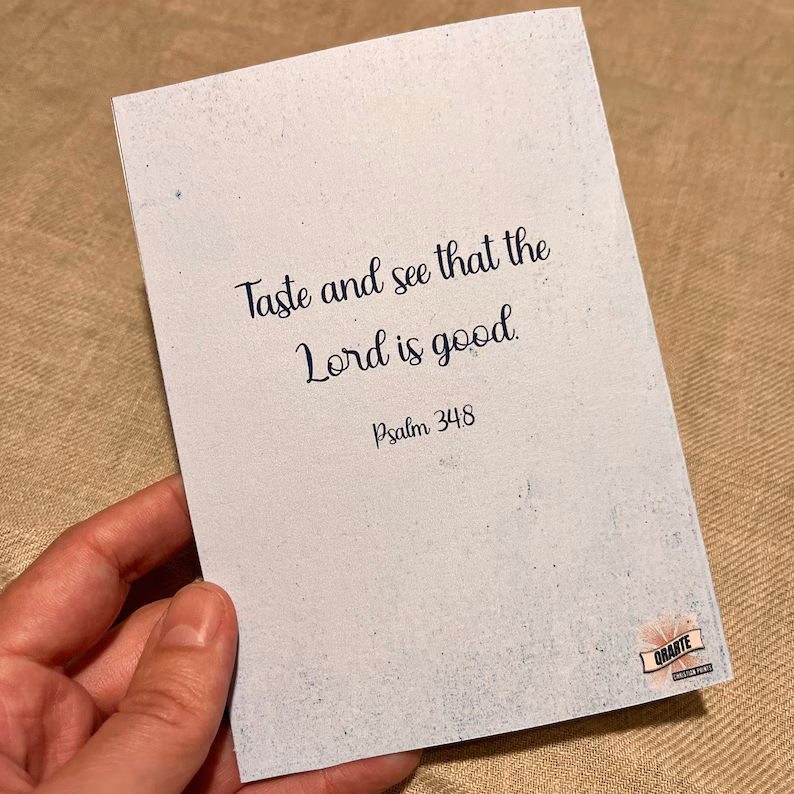 Taste and see that the
Lord is good.
Psalm 34:8
QRARTE
CHRISTIAN PRINTS